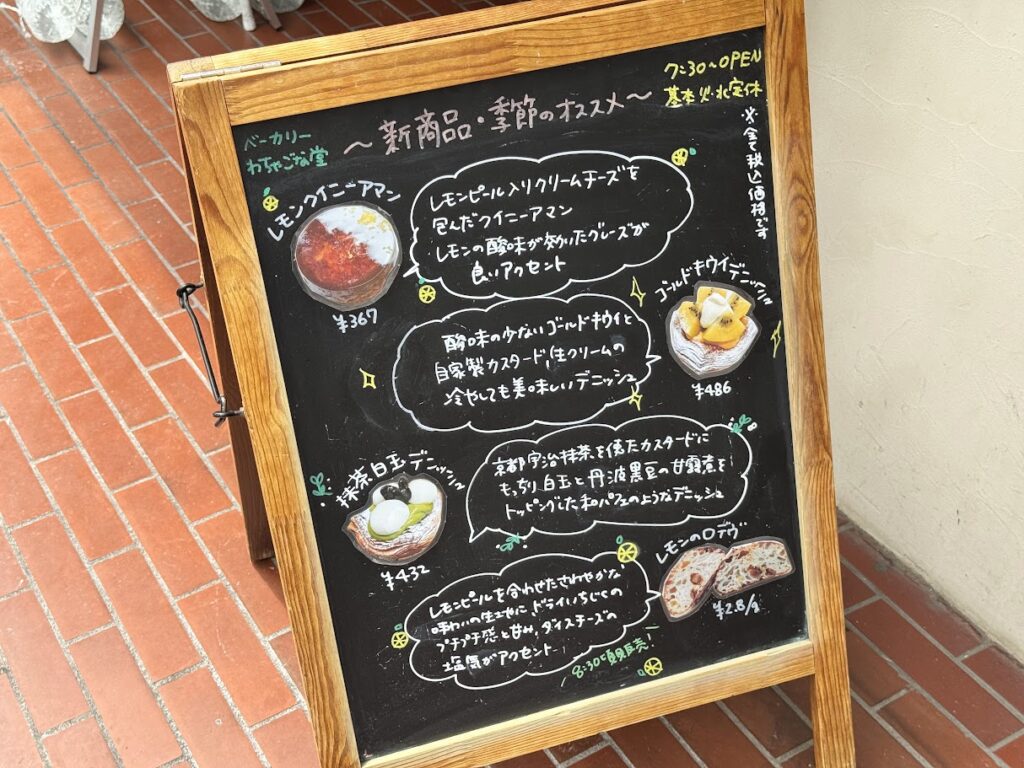 ベーカリー
わちゃごな堂
〜新商品・季節のオススメ〜
7:30〜OPEN
基本火・水定休
※全て税込価格です
レモンクイニーアマン
¥367
レモンピール入りクリームチーズを
包んだクイニーアマン
レモンの酸味が効いたグレーズが
良いアクセント
ゴールドキウイデニッシュ
¥486
酸味の少ないゴールドキウイと
自家製カスタード、生クリームの
冷やしても美味しいデニッシュ
抹茶白玉デニッシュ
¥432
京都宇治抹茶を使たカスタードに
もっちり白玉と丹波黒豆の甘露煮を
トッピングした和パフェのようなデニッシュ
レモンのロデヴ
¥2.8/g
レモンピールを合わせたさわやかな
味わいの生地に ドライいちじくの
プチプチ感と甘み、ダイスチーズの
塩気がアクセント
8:30頃販売!